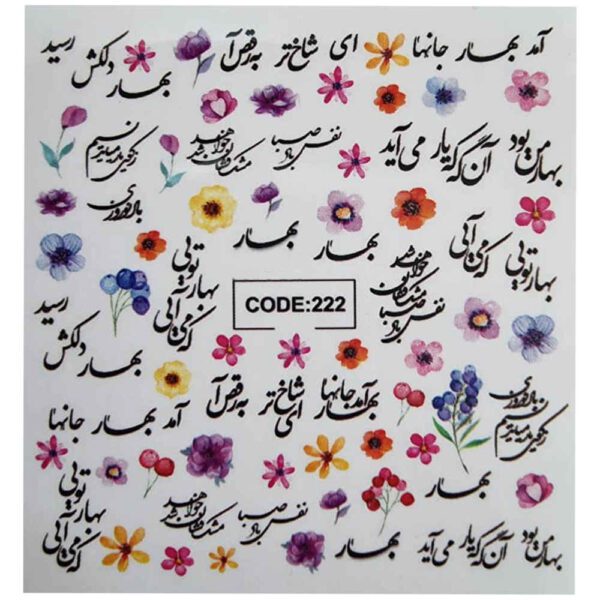 آمد بهار جانها
ای شاخ تر
به رقص آ
بهار دلکش رسید
بهار من بود
آن گه که یار می آید
نفس باد صبا
مشک فشان خواهد شد
باد نوروزی
بهار تویی
که می آیی
بهار
بهار
نفس باد صبا
مشک فشان
خواهد شد
بهار تویی
که می آیی
CODE:222
بهار دلکش رسید
باد نوروزی
بهار آمد جانها
ای شاخ تر
به رقص آ
آمد بهار جانها
بهار
بهار تویی
که می آیی
نفس باد صبا
مشک فشان خواهد شد
بهار
بهار من بود آن گه که یار می آید